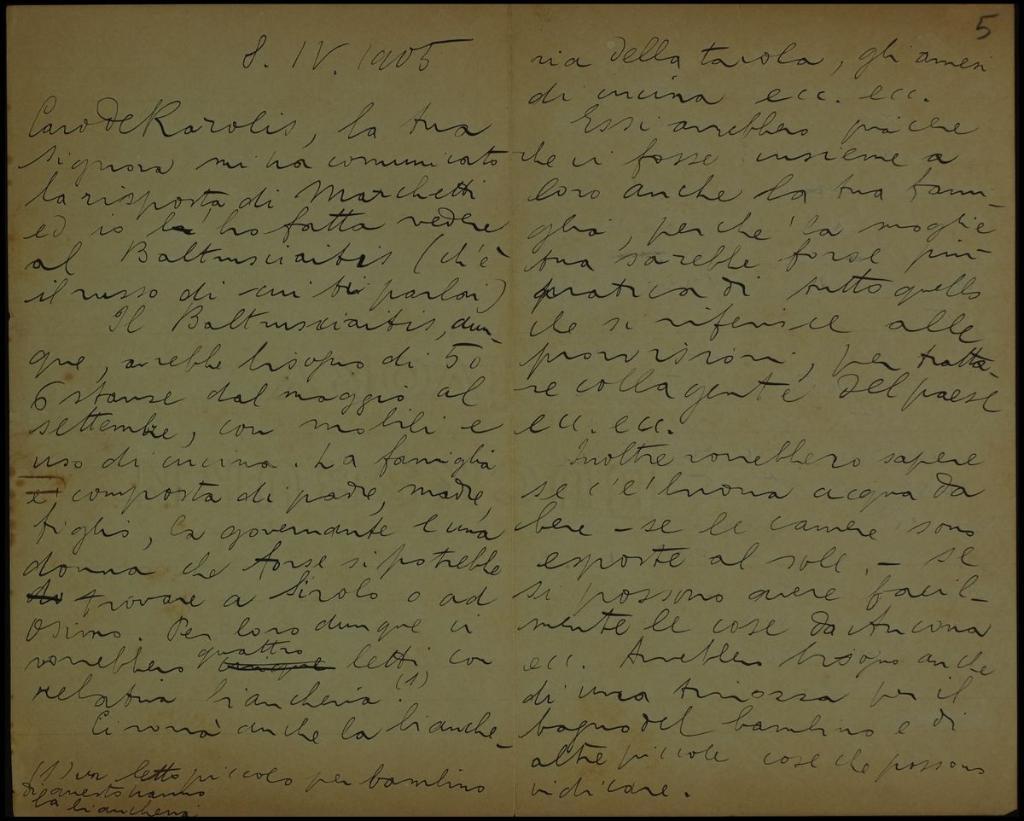 8. IV. 1905
Caro De Karolis, la tua
signora mi ha comunicato
la risposta di Marchetti
ed io l'ho fatta vedere
al Baltrusciaitis (ch'è
il russo di cui ti parlai)
Il Baltrusciaitis, dun-
que, avrebbe bisogno di 5 o
6 stanze dal maggio al
settembre, con mobili e
uso di cucina. La famiglia
è composta di padre, madre,
figlio, la governante e una
donna che forse si potrebbe
trovare a Sirolo o ad
Osimo. Per loro dunque ci
vorrebbero quattro letti con
relativa biancheria.(1)
Ci vorrà anche la bianche-
(1) un letto piccolo per bambino
di questo hanno
la biancheria
5
ria della tavola, gli arnesi
di cucina ecc. ecc.
Essi avrebbero piacere
che ci fosse insieme a
loro anche la tua fami-
glia, perché la moglie
tua sarebbe forse più
pratica di tutto quello
che si riferisce alle
provvisioni, per tratta-
re colla gente del paese
ecc. ecc.
Inoltre vorrebbero sapere
se c'è buona acqua da
bere – se le camere sono
esposte al sole, – se
si possono avere facil-
mente le cose da Ancona
ecc. Avrebbero bisogno anche
di una tinozza per il
bagno del bambino e di
altre piccole cose che possono
indicare.